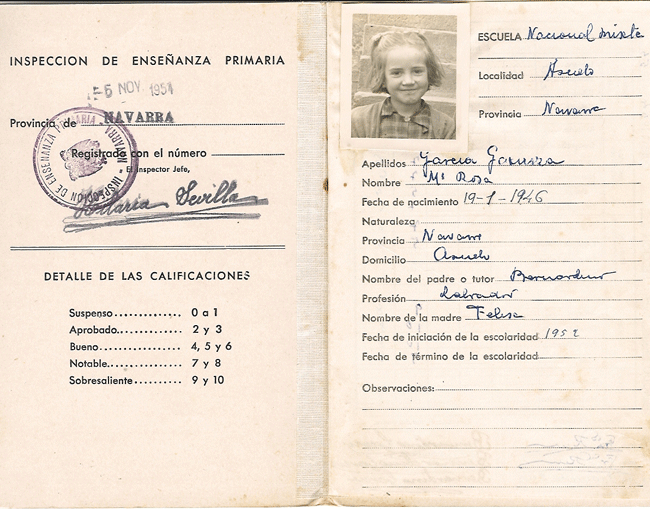 INSPECCION DE ENSEÑANZA PRIMARIA
5 NOV. 1954
Provincia de NAVARRA
Registrado con el número
El Inspector Jefe,
Hilaria Sevilla
INSPECCIÓN DE ENSEÑANZA PRIMARIA NAVARRA
DETALLE DE LAS CALIFICACIONES
Suspenso.............. 0 a 1
Aprobado.............. 2 y 3
Bueno................. 4, 5 y 6
Notable............... 7 y 8
Sobresaliente.......... 9 y 10
ESCUELA Nacional mixta
Localidad Asuelo
Provincia Navarra
Apellidos García
Nombre Mª Rosa
Fecha de nacimiento 19-1-1946
Naturaleza
Provincia Navarra
Domicilio Asuelo
Nombre del padre o tutor Bernardino
Profesión Labrador
Nombre de la madre Felisa
Fecha de iniciación de la escolaridad 1952
Fecha de término de la escolaridad
Observaciones: